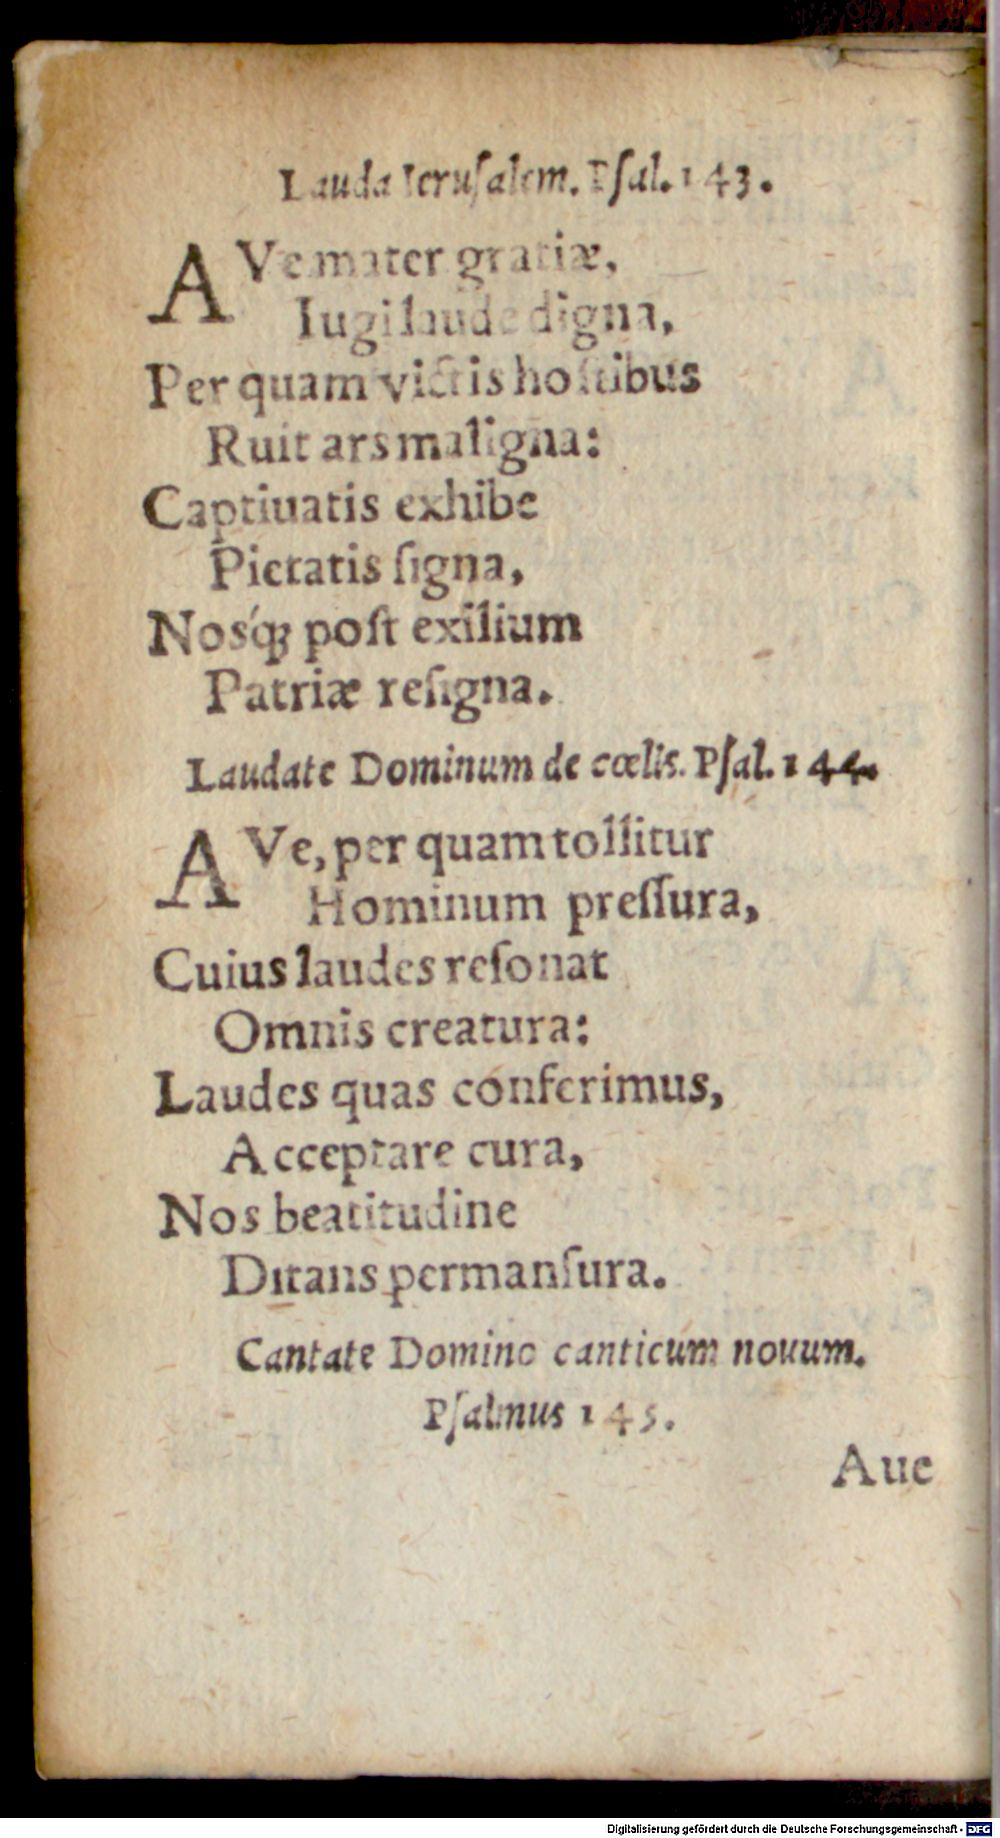 Lauda Ieruſalem. Pſal. 143.
AVe mater gratiæ,
Iugi laude digna,
Per quam victis hoſtibus
Ruit ars maligna:
Captiuatis exhibe
Pietatis ſigna,
Nosq́; poſt exilium
Patriæ reſigna.
Laudate Dominum de cœlis. Pſal. 144.
AVe, per quam tollitur
Hominum preſſura,
Cuius laudes reſonat
Omnis creatura:
Laudes quas conferimus,
Acceptare cura,
Nos beatitudine
Ditans permanſura.
Cantate Domino canticum nouum.
Pſalmus 145.
Aue
Digitalisierung gefördert durch die Deutsche Forschungsgemeinschaft - DFG